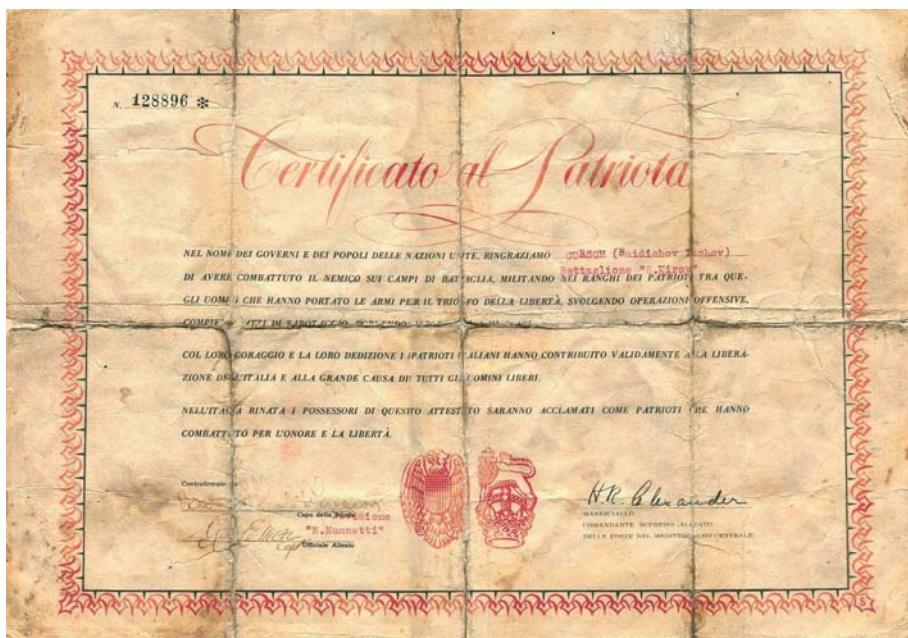 N. 128896 *
Certificato al Patriota
NEL NOME DEI GOVERNI E DEI POPOLI DELLE NAZIONI UNITE, RINGRAZIAMO
Battaglione "S.Kirov"
DI AVERE COMBATTUTO IL NEMICO SUI CAMPI DI BATTAGLIA, MILITANDO NEI RANGHI DEI PATRIOTI TRA QUE-
GLI UOMINI CHE HANNO PORTATO LE ARMI PER IL TRIONFO DELLA LIBERTÀ, SVOLGENDO OPERAZIONI OFFENSIVE,
ATTI DI SABOTAGGIO,
COL LORO CORAGGIO E LA LORO DEDIZIONE I PATRIOTI ITALIANI HANNO CONTRIBUITO VALIDAMENTE ALLA LIBERA-
ZIONE DELL'ITALIA E ALLA GRANDE CAUSA DI TUTTI GLI UOMINI LIBERI.
NELL'ITALIA RINATA I POSSESSORI DI QUESTO ATTESTATO SARANNO ACCLAMATI COME PATRIOTI CHE HANNO
COMBATTUTO PER L'ONORE E LA LIBERTÀ.
Controfirmato da
Capo della
Divisione
"N.Nannetti"
Ufficiale Alleato
H.R. Alexander
MARESCIALLO
COMANDANTE SUPREMO ALLEATO
DELLE FORZE NEL MEDITERRANEO CENTRALE